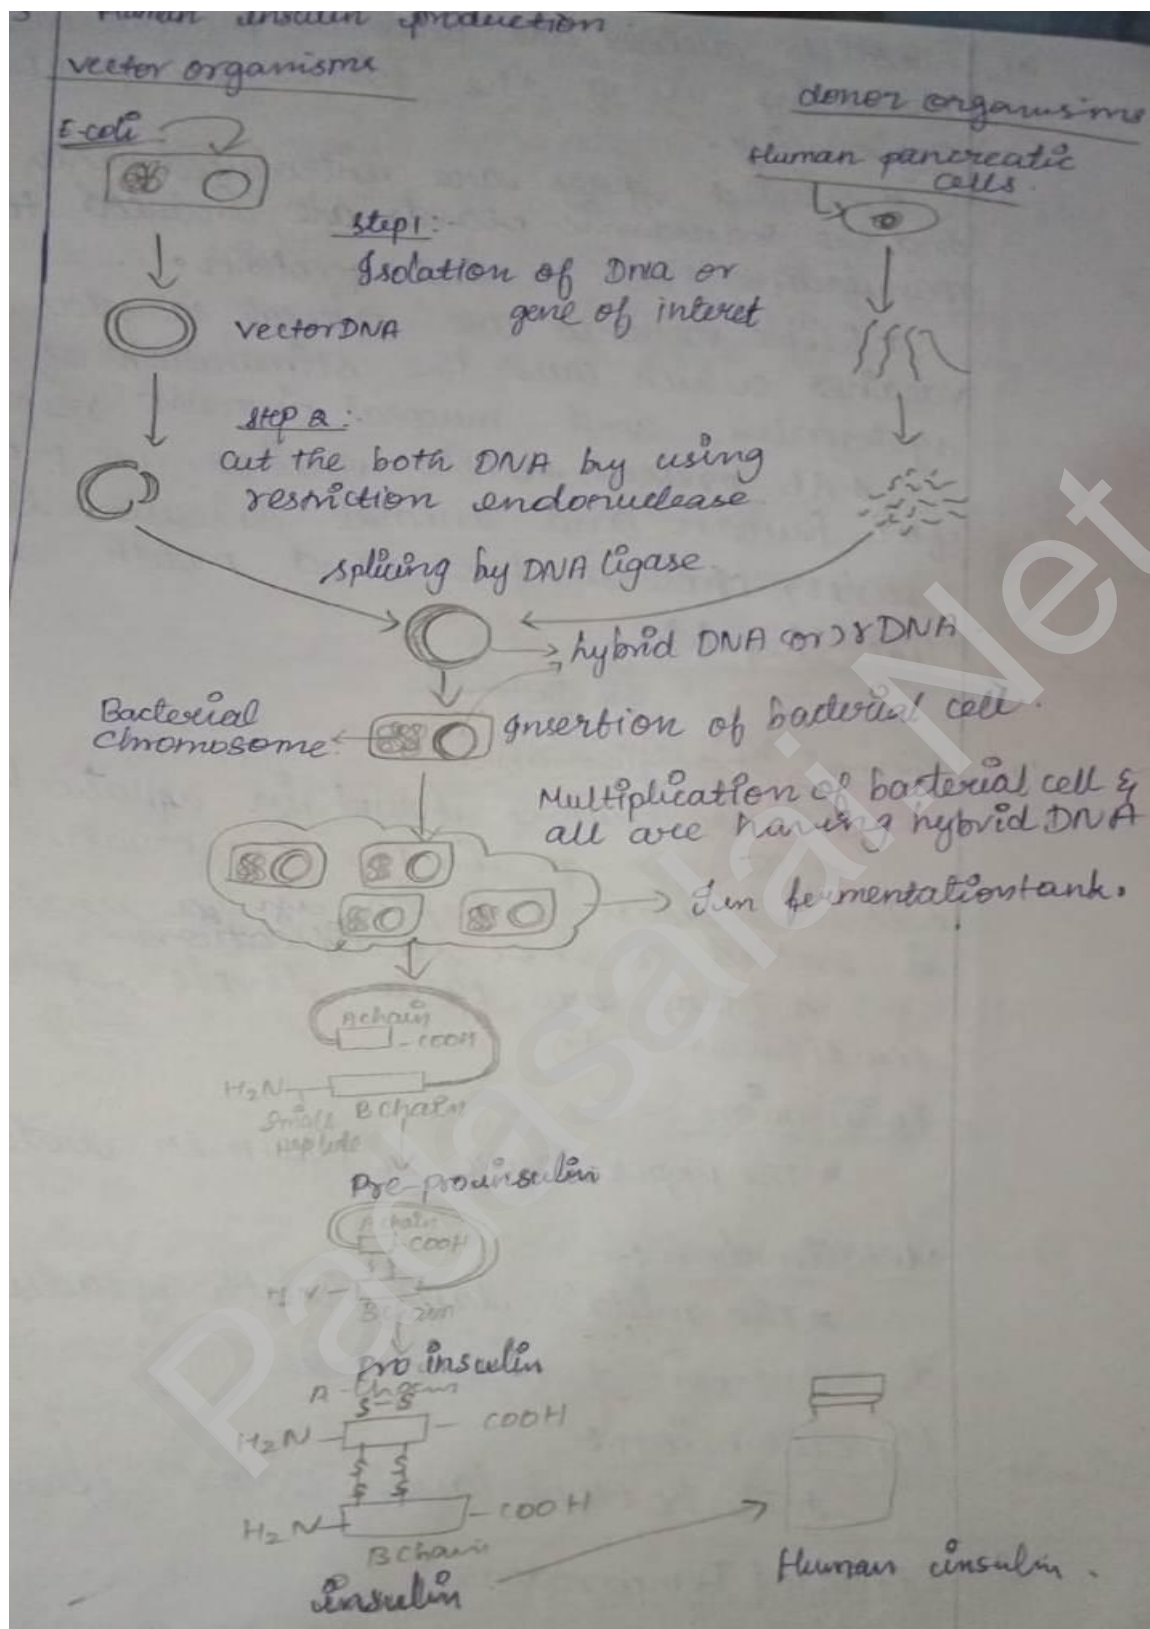 Human insulin production
vector organisms
donor organisms
E-coli
Human pancreatic
cells.
Step 1:-
Isolation of Dna or
gene of interet
vectorDNA
Step 2:
cut the both DNA by using
restriction endonuclease
splicing by DNA ligase.
hybrid DNA (or) r DNA
Bacterial
chromosome
Insertion of bacterial cell.
Multiplication of bacterial cell &
all are having hybrid DNA
fermentationtank.
A chain
-COOH
H2N
Small
B chain
peptide
Pre-proinsulin
A chain
COOH
B chain
Pro insulin
A-Chain
S-S
H2N - COOH
S S
S S
H2N - COOH
B Chain
insulin
Human insulin.
Padasalai.Net